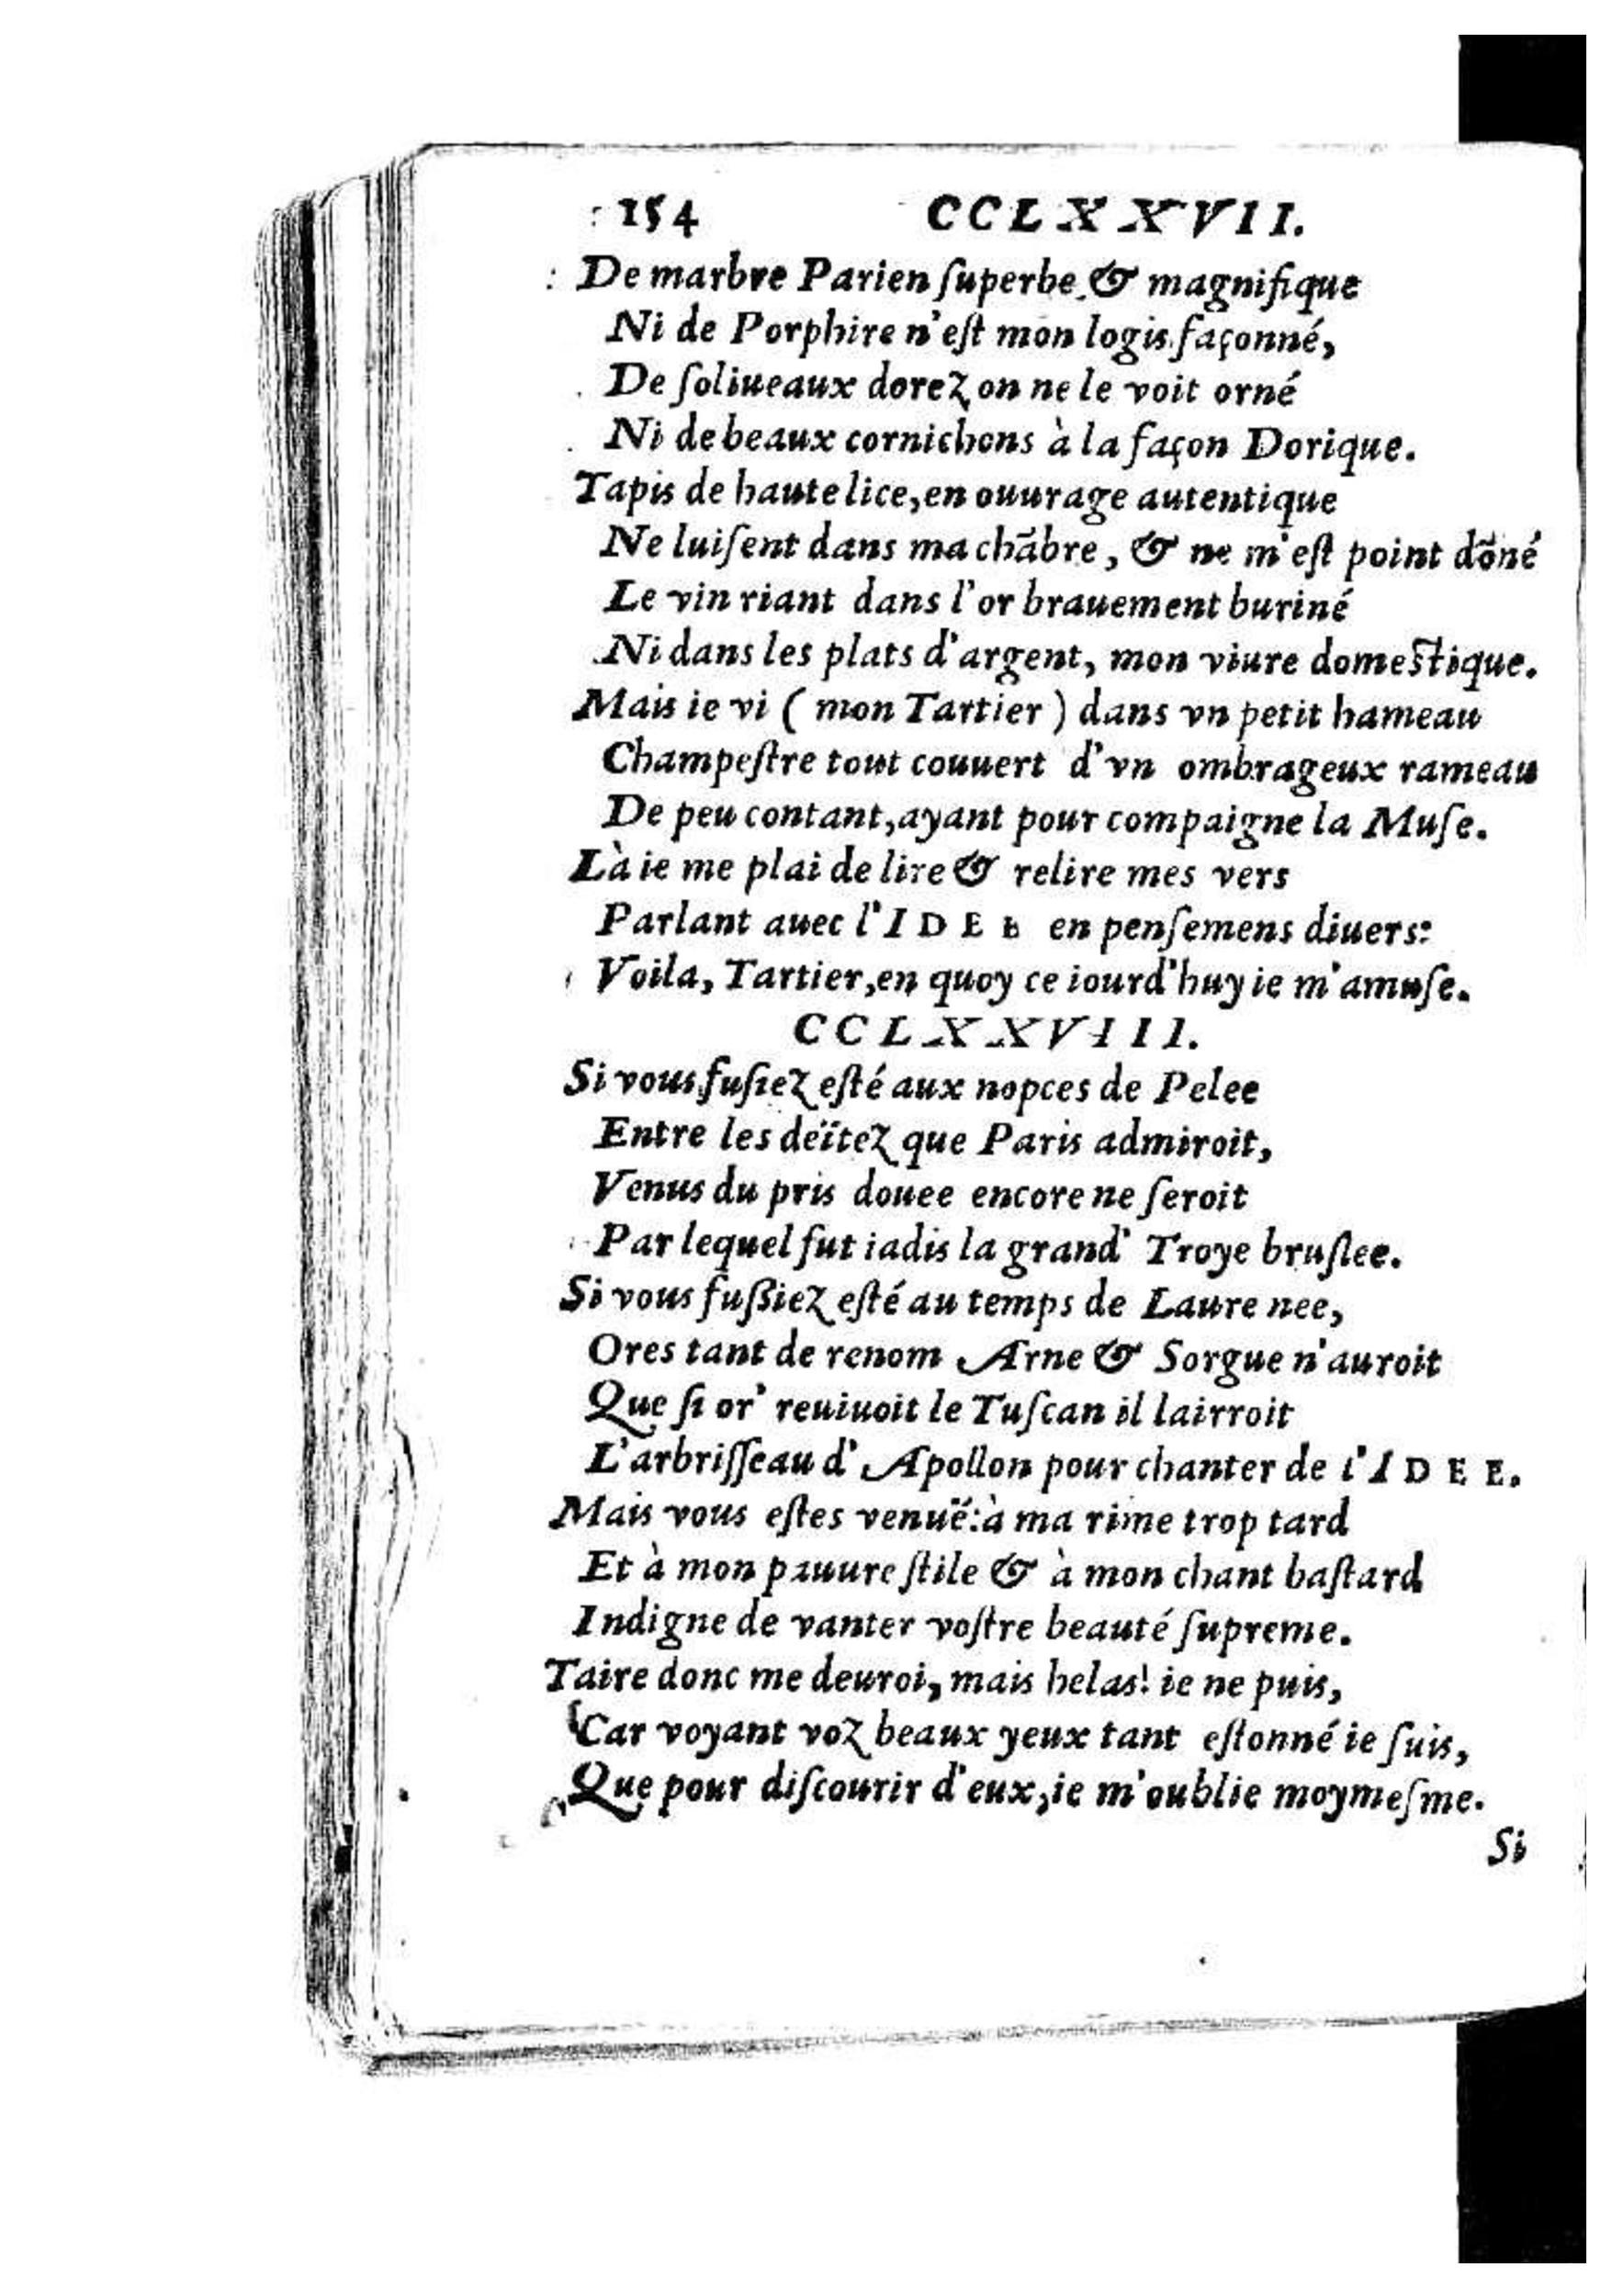 154 CCLXXVII.
De marbre Parien ſuperbe & magnifique
Ni de Porphire n'eſt mon logis façonné,
De ſoliueaux dorez on ne le voit orné
Ni de beaux cornichons à la façon Dorique.
Tapis de haute lice, en ouurage autentique
Ne luiſent dans ma chãbre, & ne m'eſt point dõné
Le vin riant dans l'or brauement buriné
Ni dans les plats d'argent, mon viure domeſtique.
Mais ie vi ( mon Tartier ) dans vn petit hameau
Champeſtre tout couuert d'vn ombrageux rameau
De peu contant, ayant pour compaigne la Muſe.
Là ie me plai de lire & relire mes vers
Parlant auec l'IDEE en penſemens diuers:
Voila, Tartier, en quoy ce iourd'huy ie m'amuſe.
CCLXXVIII.
Si vous fuſiez eſté aux nopces de Pelee
Entre les deïtez que Paris admiroit,
Venus du pris douee encore ne ſeroit
Par lequel fut iadis la grand' Troye bruſlee.
Si vous fußiez eſté au temps de Laure nee,
Ores tant de renom Arne & Sorgue n'auroit
Que ſi or' reuiuoit le Tuſcan il lairroit
L'arbriſſeau d'Apollon pour chanter de l'IDEE.
Mais vous eſtes venuë: à ma rime trop tard
Et à mon pauure ſtile & à mon chant baſtard
Indigne de vanter voſtre beauté ſupreme.
Taire donc me deuroi, mais helas! ie ne puis,
Car voyant voz beaux yeux tant eſtonné ie ſuis,
Que pour diſcourir d'eux, ie m'oublie moymeſme.
Si